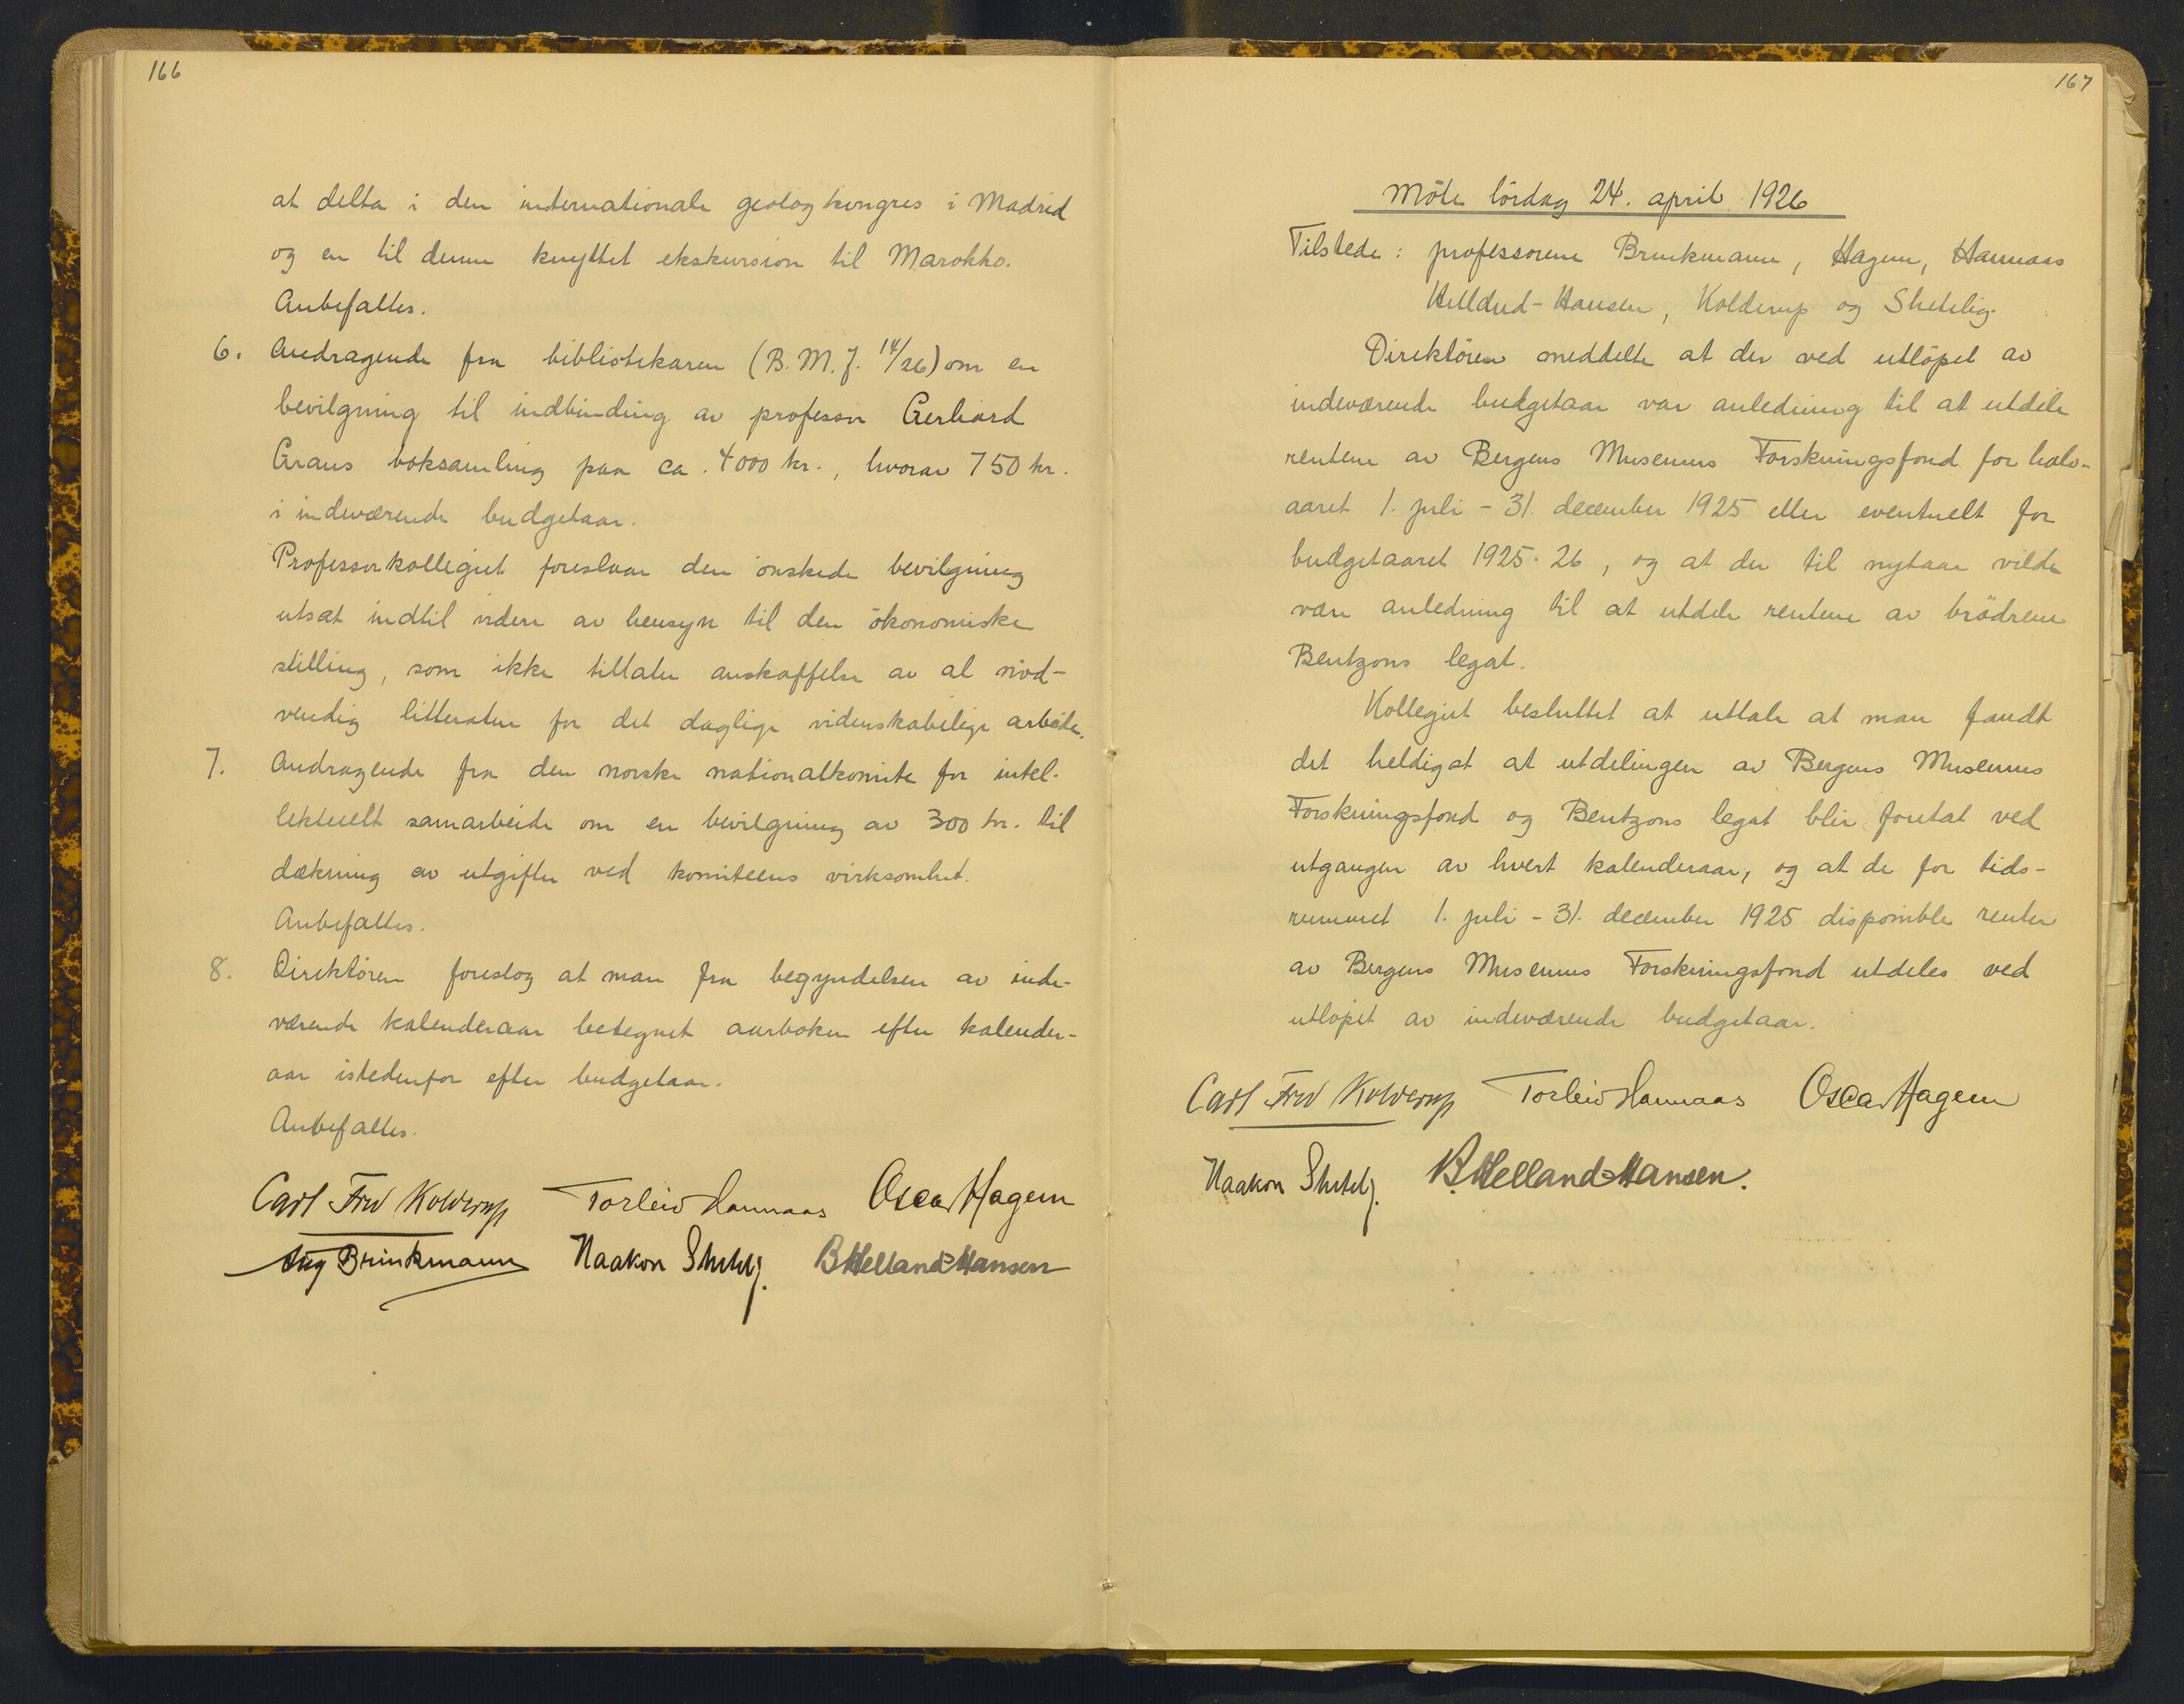 166
at delta i den internationale geologkongres i Madrid
og en til denne knyttet ekskursion til Marokko.
Anbefaltes.
6. Andragende fra bibliotekaren (B.M.J. 14/26) om en
bevilgning til indbinding av professor Gerhard
Grans boksamling paa ca. 4000 kr., hvorav 750 kr.
i indeværende budgetaar.
Professorkollegiet foreslaar den önskede bevilgning
utsat indtil videre av hensyn til den ökonomiske
stilling, som ikke tillater anskaffelse av al nöd-
vendig litteratur for det daglige videnskabelige arbeide.
7. Andragende fra den norske nationalkomite for intel-
lektuelt samarbeide om en bevilgning av 300 kr. til
dækning av utgifter ved komiteens virksomhet.
Anbefaltes.
8. Direktören foreslog at man fra begyndelsen av inde-
værende kalenderaar betegnet aarboken efter kalender-
aar istedenfor efter budgetaar.
Anbefaltes.
Carl Fred Kolderup Torleiv Hannaas Oscar Hagem
Aug Brinkmann Haakon Shetelig. B Helland-Hansen
167
Möte lördag 24. april 1926
Tilstede: professorene Brinkmann, Hagem, Hannaas
Helland-Hansen, Kolderup og Shetelig.
Direktören meddelte at der ved utlöpet av
indeværende budgetaar var anledning til at utdele
rentene av Bergens Museums Forskningsfond for halv-
aaret 1. juli - 31. december 1925 eller eventuelt for
budgetaaret 1925-26, og at der til nytaar vilde
være anledning til at utdele rentene av brödrene
Bentzons legat.
Kollegiet besluttet at uttale at man fandt
det heldigst at utdelingen av Bergens Museums
Forskningsfond og Bentzons legat blir foretat ved
utgangen av hvert kalenderaar, og at de for tids-
rummet 1. juli - 31. december 1925 disponible renter
av Bergens Museums Forskningsfond utdeles ved
utlöpet av indeværende budgetaar.
Carl Fred Kolderup Torleiv Hannaas Oscar Hagem
Haakon Shetelig. B. Helland-Hansen.